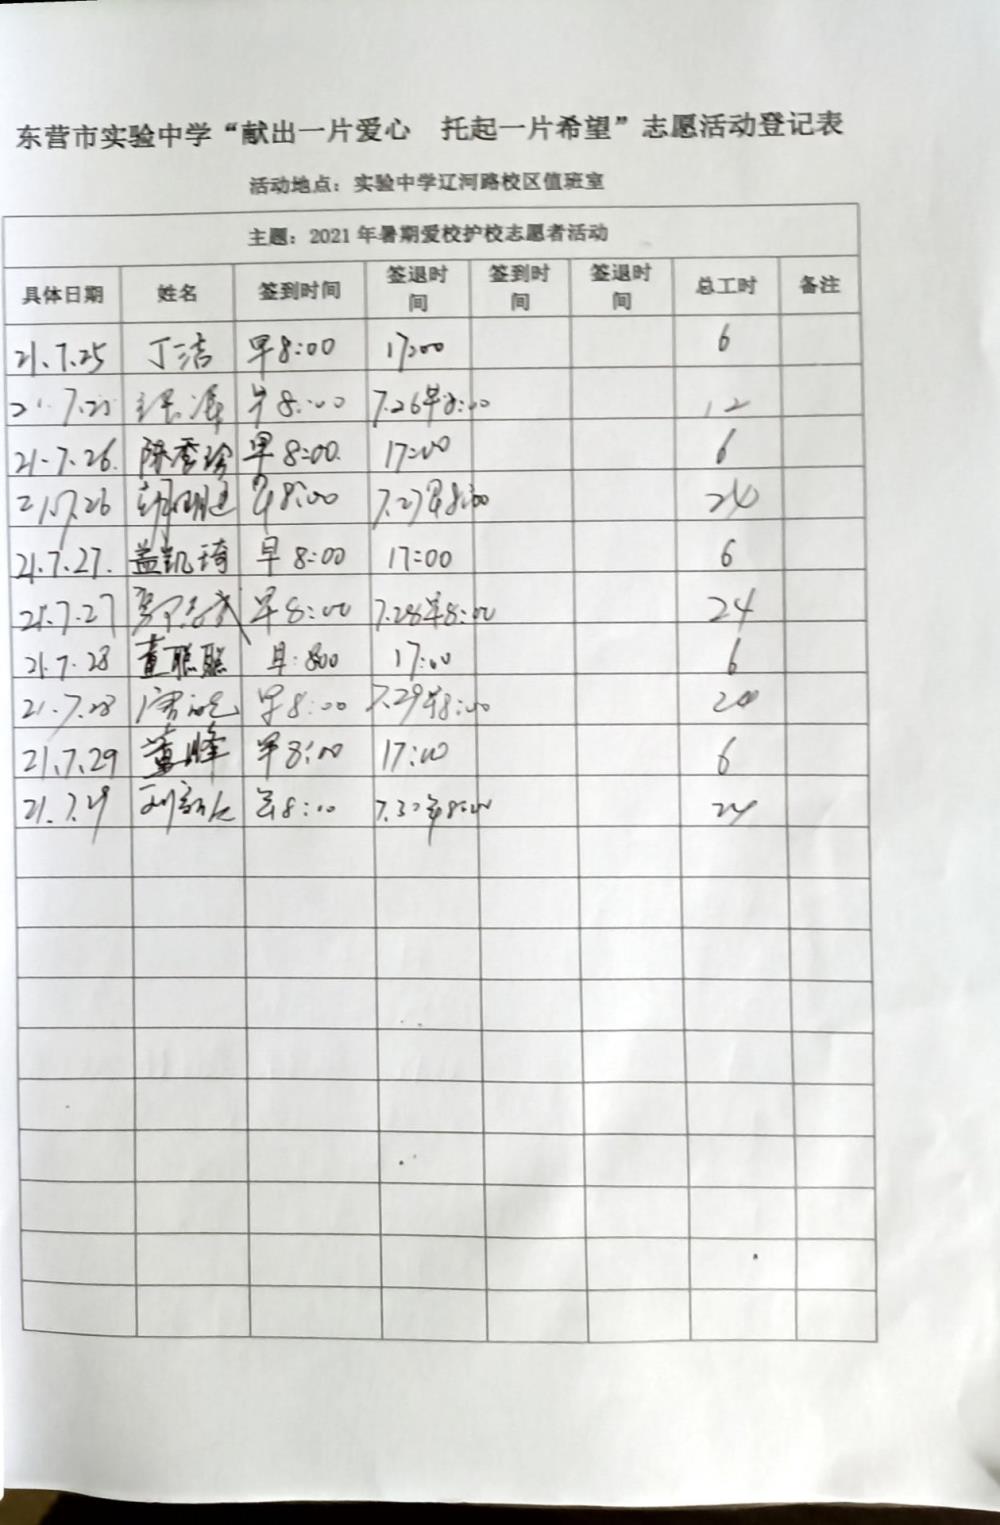 东营市实验中学“献出一片爱心 托起一片希望”志愿活动登记表
活动地点：实验中学辽河路校区值班室
主题：2021年暑期爱校护校志愿者活动
具体日期 姓名 签到时间 签退时间 签到时间 签退时间 总工时 备注
21.7.25 丁洁 早8:00 17:00 6
21.7.25 早8:00 7.26早8:00 12
21.7.26. 陈秀珍 早8:00. 17:00 6
21.7.26 早8:00 7.27早8:00 24
21.7.27. 盖凯琦 早8:00 17:00 6
21.7.27 早8:00 7.28早8:00 24
21.7.28 董聪聪 早:800 17:00 6
21.7.28 早8:00 7.29早8:00
21.7.29 董峰 早8:00 17:00 6
21.7.29 早8:00 7.30早8:00 24